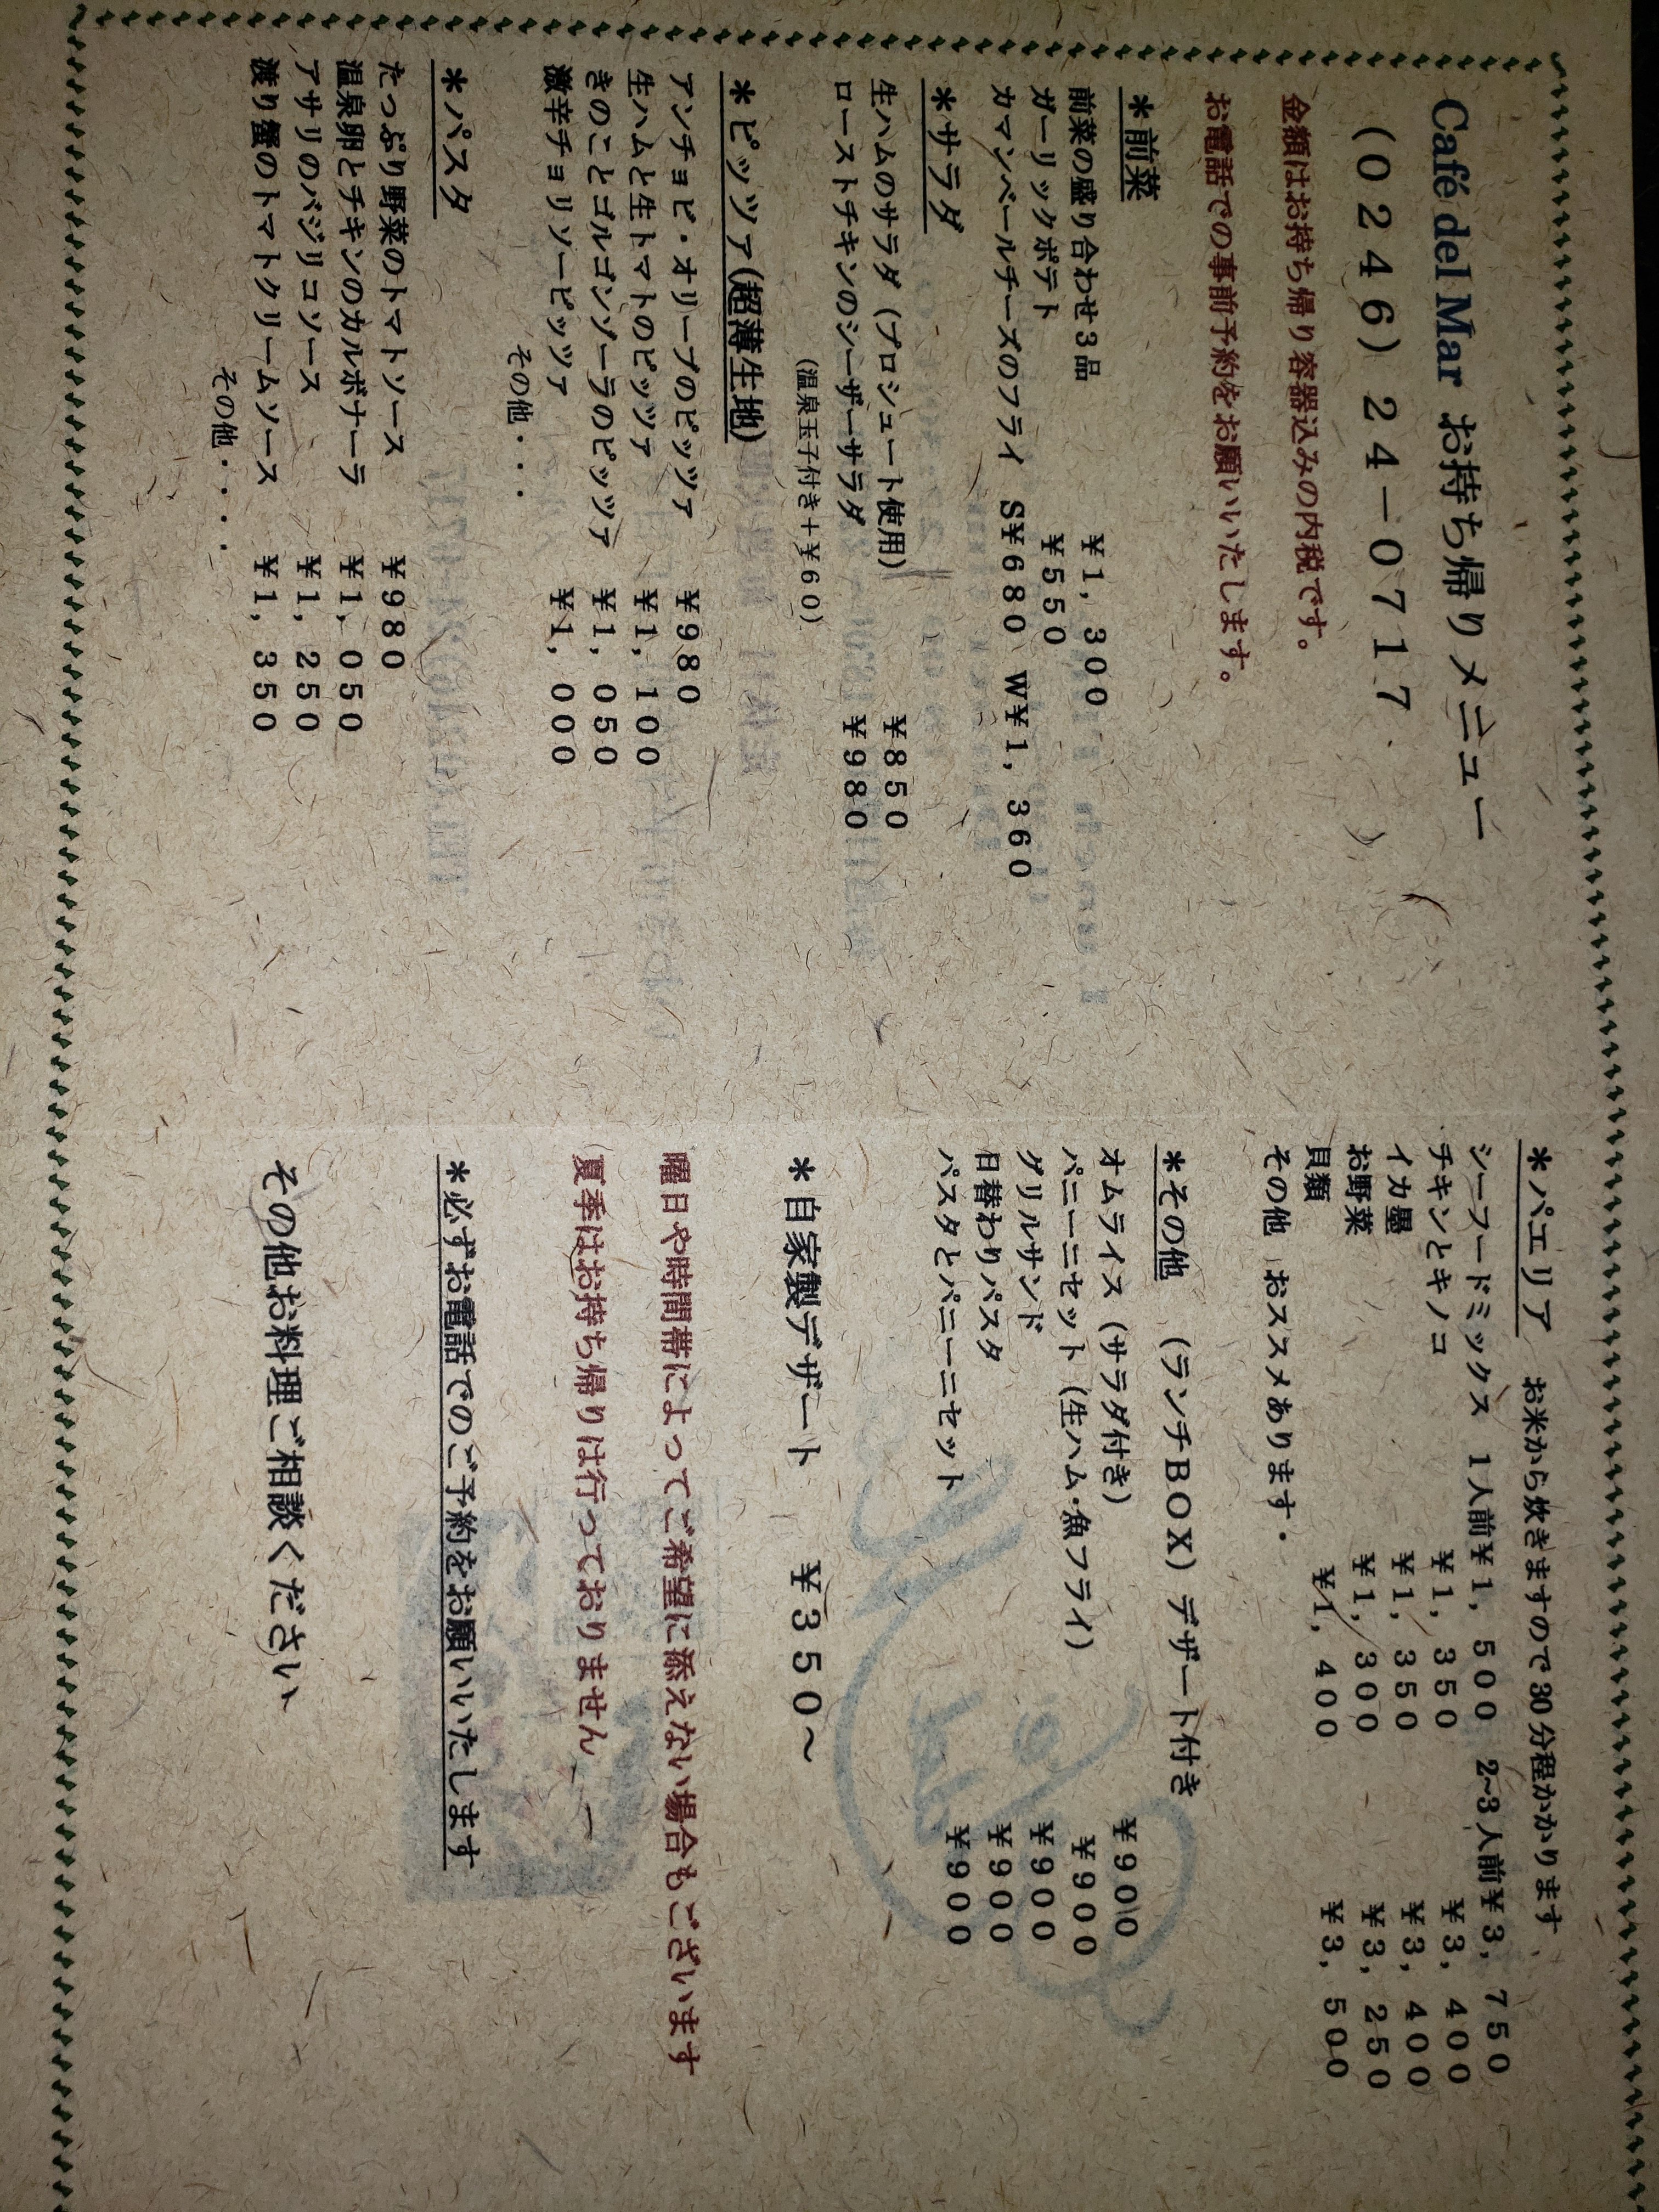 Café del Mar お持ち帰りメニュー
(0246)24－0717
金額はお持ち帰り容器込みの内税です。
お電話での事前予約をお願いいたします。
＊前菜
前菜の盛り合わせ3品 ¥1,300
ガーリックポテト ¥550
カマンベールチーズのフライ S¥680 W¥1,360
＊サラダ
生ハムのサラダ（プロシュート使用） ¥850
ローストチキンのシーザーサラダ ¥980
(温泉玉子付き＋¥60)
＊ピッツァ(超薄生地)
アンチョビ・オリーブのピッツァ ¥980
生ハムと生トマトのピッツァ ¥1,100
きのことゴルゴンゾーラのピッツァ ¥1,050
激辛チョリソーピッツァ ¥1,000
その他・・・
＊パスタ
たっぷり野菜のトマトソース ¥980
温泉卵とチキンのカルボナーラ ¥1,050
アサリのバジリコソース ¥1,250
渡り蟹のトマトクリームソース ¥1,350
その他・・・
＊パエリア お米から炊きますので30分程かかります
シーフードミックス 1人前¥1,500 2~3人前¥3,750
チキンとキノコ ¥1,350 ¥3,400
イカ墨 ¥1,350 ¥3,400
お野菜 ¥1,300 ¥3,250
貝類 ¥1,400 ¥3,500
その他 おススメあります・
＊その他 （ランチBOX）デザート付き
オムライス（サラダ付き） ¥900
パニーニセット（生ハム・魚フライ） ¥900
グリルサンド ¥900
日替わりパスタ ¥900
パスタとパニーニセット ¥900
＊自家製デザート ¥350～
曜日や時間帯によってご希望に添えない場合もございます
夏季はお持ち帰りは行っておりません
＊必ずお電話でのご予約をお願いいたします
その他お料理ご相談ください